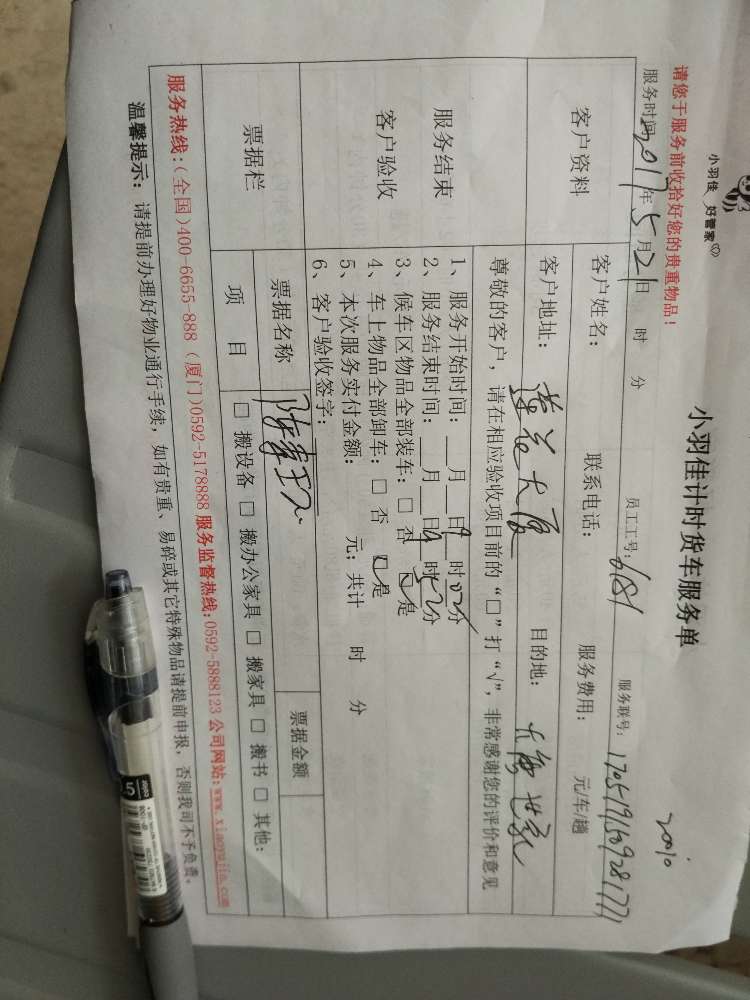 小羽佳 好管家
小羽佳计时货车服务单
请您于服务前收拾好您的贵重物品！
服务时间：2017年5月21日 时 分 员工工号：6181 服务联号：170519150928177
客户资料
客户姓名： 联系电话： 服务费用： 元/车/趟
客户地址：莲花大厦 目的地：
服务结束
客户验收
尊敬的客户，请在相应验收项目前的“□”打“√”，非常感谢您的评价和意见
1、服务开始时间：___月___日9时02分
2、服务结束时间：___月___日9时52分
3、候车区物品全部装车：□ 否 ☑是
4、车上物品全部卸车：□ 否 ☑是
5、本次服务实付金额： 元；共计 时 分
6、客户验收签字：
票据栏
票据名称 票据金额
项 目 □ 搬设备 □ 搬办公家具 □ 搬家具 □ 搬书 □ 其他：
服务热线：(全国)400-6655-888 (厦门)0592-5178888 服务监督热线：0592-5888123 公司网站：www.xiaoyujia.com
温馨提示： 请提前办理好物业通行手续，如有贵重、易碎或其它特殊物品请提前申报，否则我司不予负责。